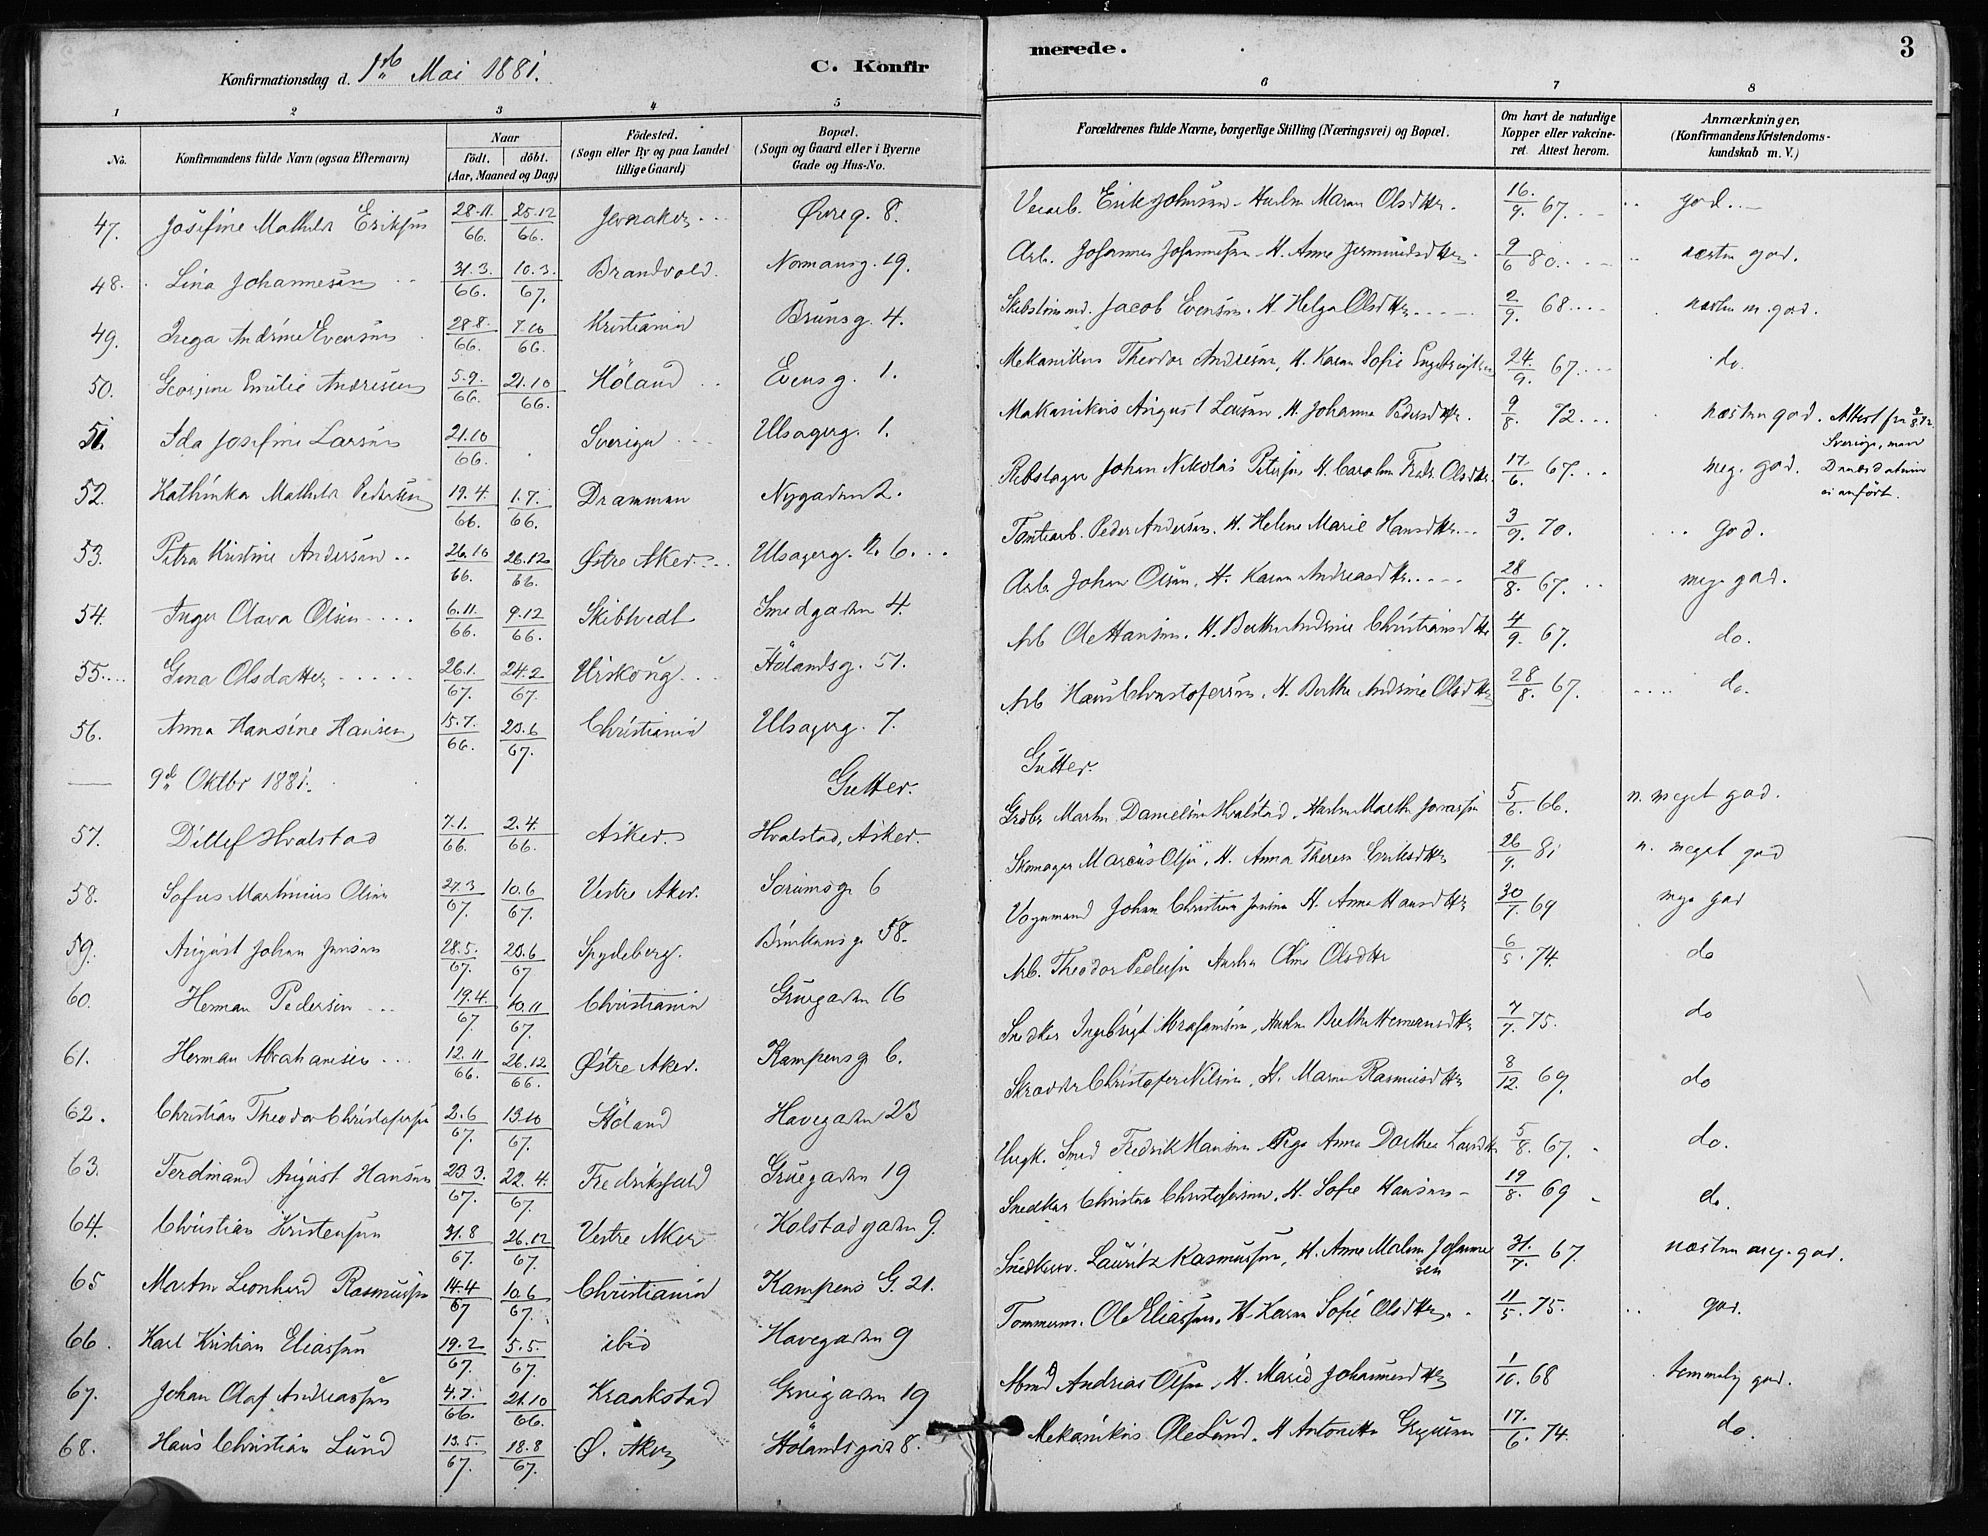 Konfirmationsdag d. 1ste Mai 1881.
C. Konfir
merede.
3
1 2 3 4 5 6 7 8
No.
Konfirmandens fulde Navn (ogsaa Efternavn)
Naar
födt. döbt.
(Aar, Maaned og Dag)
Födested.
(Sogn eller By og paa Landet
tillige Gaard)
Bopæl.
(Sogn og Gaard eller i Byerne
Gade og Hus-No.
Forældrenes fulde Navne, borgerlige Stilling (Næringsvei) og Bopæl.
Om havt de naturlige
Kopper eller vakcine-
ret. Attest herom.
Anmærkninger.
(Konfirmandens Kristendoms-
kundskab m. V.)
47. Josefine Mathilde Eriksen 28.11. 66. 25.12 66. Jevnaker Øvre g. 8. Erik Johnsen Maren Olsdtter. 16./9. 67. god.
48. Lina Johannesen 31.3. 66. 10.3. 67. Brandvold. Normansg. 19. Arb. Johannes Johannesen H. Anne 9/6 80. næsten god.
49. Inga Andrine Evensen 28.8. 66. 7.10 66. Kristiania Brunsg. 4. Jacob Evensen. H. Helga Olsdtter 2/9. 68 næsten m. god.
50. Georgine Emilie Andresen 5.9. 66. 21.10 66. Höland Evensg. 1. Mekanikus Theodor Andresen, H. Karen Sofie 24./9. 67. do.
51. Ida Josefine Larsen 21.10 66. Sverige Ulsagerg. 1. Mekanikus August Larsen, H. Johanne Pedersdtter 9/8. 72 næsten god. Attest fra
Sverige, men
ei anfört.
52. Kathinka Mathilde Pedersen 19.4. 66. 1.7. 66. Drammen Nygaden 2. Rebslager Johan Nikolai Petersen H. Caroline Olsdtter. 17/6. 67. meg. god.
53. Petra Kristine Andersen 26.10 66. 26.12 66. Østre Aker. Ulsagerg. 6. Peder Andersen. H. Helene Marie Hansdtter 3/9. 70. god.
54. Inger Olava Olsen 6.11. 66. 9.12 66. Skibtvedt Smedgaden 4. Arb. Johan Olsen, H. Karen Andreasdtter 28/8. 67. meg. god.
55. Gina Olsdatter 26.1. 67. 24.2 67. Urskoug Hölandsg. 51. Arb Ole Hansen. H. Berthe Andrine Christiansdtter 4/9. 67. do.
56. Anna Hansine Hansen 15.7. 66. 23.6 67. Christiania Ulsagerg. 7. Arb Hans Christofersen, H. Berthe Andrine Olsdtter 28/8. 67. do.
9de Oktbr 1881. Gutter. Gutter.
57. Ditlef Hvalstad 7.1. 66. 2.4. 66. Asker. Hvalstad, Asker. Grdbr Martin Danielsen Hvalstad, 5/6. 66. n. meget god.
58. Sofus Martinius Olsen 27.3 67. 10.6 67. Vestre Aker. Sörumsg. 6 Skomager Marcus Olsen, H. Anna Therese Eriksdtter 26/9. 81 n. meget god
59. August Johan Jensen 28.5. 67. 23.6 67 Spydeberg. 58. Vognmand Johan Christian Jensen H. Anne Hansdtter 30/7. 69 meg. god
60. Herman Pedersen 19.4. 67. 10.11 67. Christiania Gruegaden 16 Arb. Theodor Pedersen Olsdtter 6/5. 74. do
61. Herman Abrahamsen 12.11 66. 26.12 66. Østre Aker. Kampensg. 6. Snedker Ingebrigt Abrahamsen, 7/7. 75. do
62. Christian Theodor Christofersen 2.6 67. 13.10 67. Höland Havegaden 23 Christofer Nilsen, H. Maren Rasmusdtter 8/12. 69. do
63. Ferdinand August Hansen 23.3. 67. 22.4. 67. Fredrikshald Gruegaden 19 Smed Fredrik Hansen Pige Anne Dorthea Larsdtter 5/8. 67. do.
64. Christian Kristensen 31.8 67. 26.12 67. Vestre Aker Kolstadgaden 9. Snedker Christen Christofersen, H. Sofie Hansen 19/8. 69 do.
65 Martin Leonhard Rasmussen 14.4 67 10.6 67. Christiania Kampens G. 21. Lauritz Rasmussen, H. Anne Malene Johanne
sen 31/7. 67. næsten meg. god.
66. Karl Kristian Eliassen 19.2 67. 5.5. 67. ibid Havegaden 9 Tømmerm. Ole Eliassen. H. Karen Sofie Olsdtter. 11/5. 75. god.
67. Johan Olaf Andreassen 4.7. 66. 21.10 66. Kraakstad Gruegaden 19 Andreas Olsen, H. Marie Johannesdtter 1/10. 68 temmelig god.
68. Hans Christian Lund 13.5. 67. 18.8 67. Ø. Aker Hölandsgade 8. Mekanikus Ole Lund, H Antonette 17./6. 74. do.